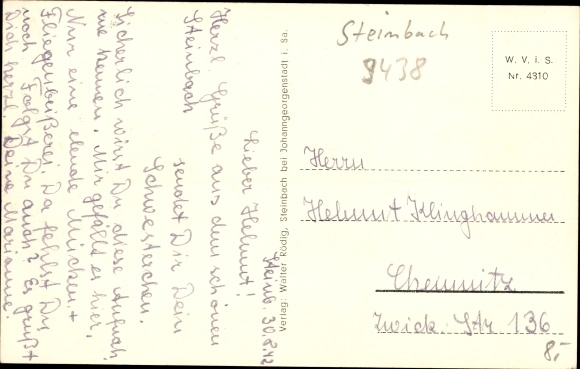 Steinb. 30.8.42
Lieber Helmut!
Herzl. Grüße aus dem schönen
Steinbach
sendet Dir Dein
Schwesterchen.
Sicherlich wirst Du diese Aufnah-
me kennen. Mir gefällt es hier.
Nur eine elende Mücken- +
Fliegenbeißerei. Da fehlst Du
noch. Folgst Du auch? Es grüßt
Dich herzl. Deine Marianne.
Verlag: Walter Rödig, Steinbach bei Johanngeorgenstadt i. Sa.
Steinbach
9438
W. V. i. S.
Nr. 4310
Herrn
Helmut Klinghammer
Chemnitz
Zwick. Str 136
8,-